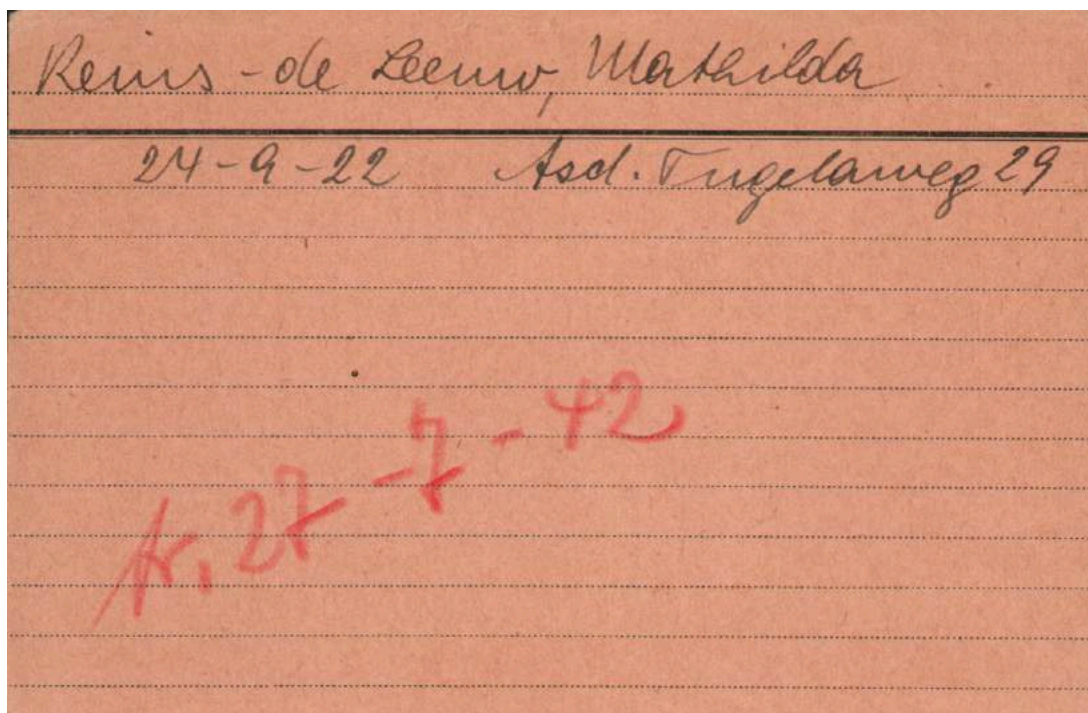 Reins - de Leeuw, Mathilda
24-9-22 Asd. Tugelaweg 29
tr. 27-7-42